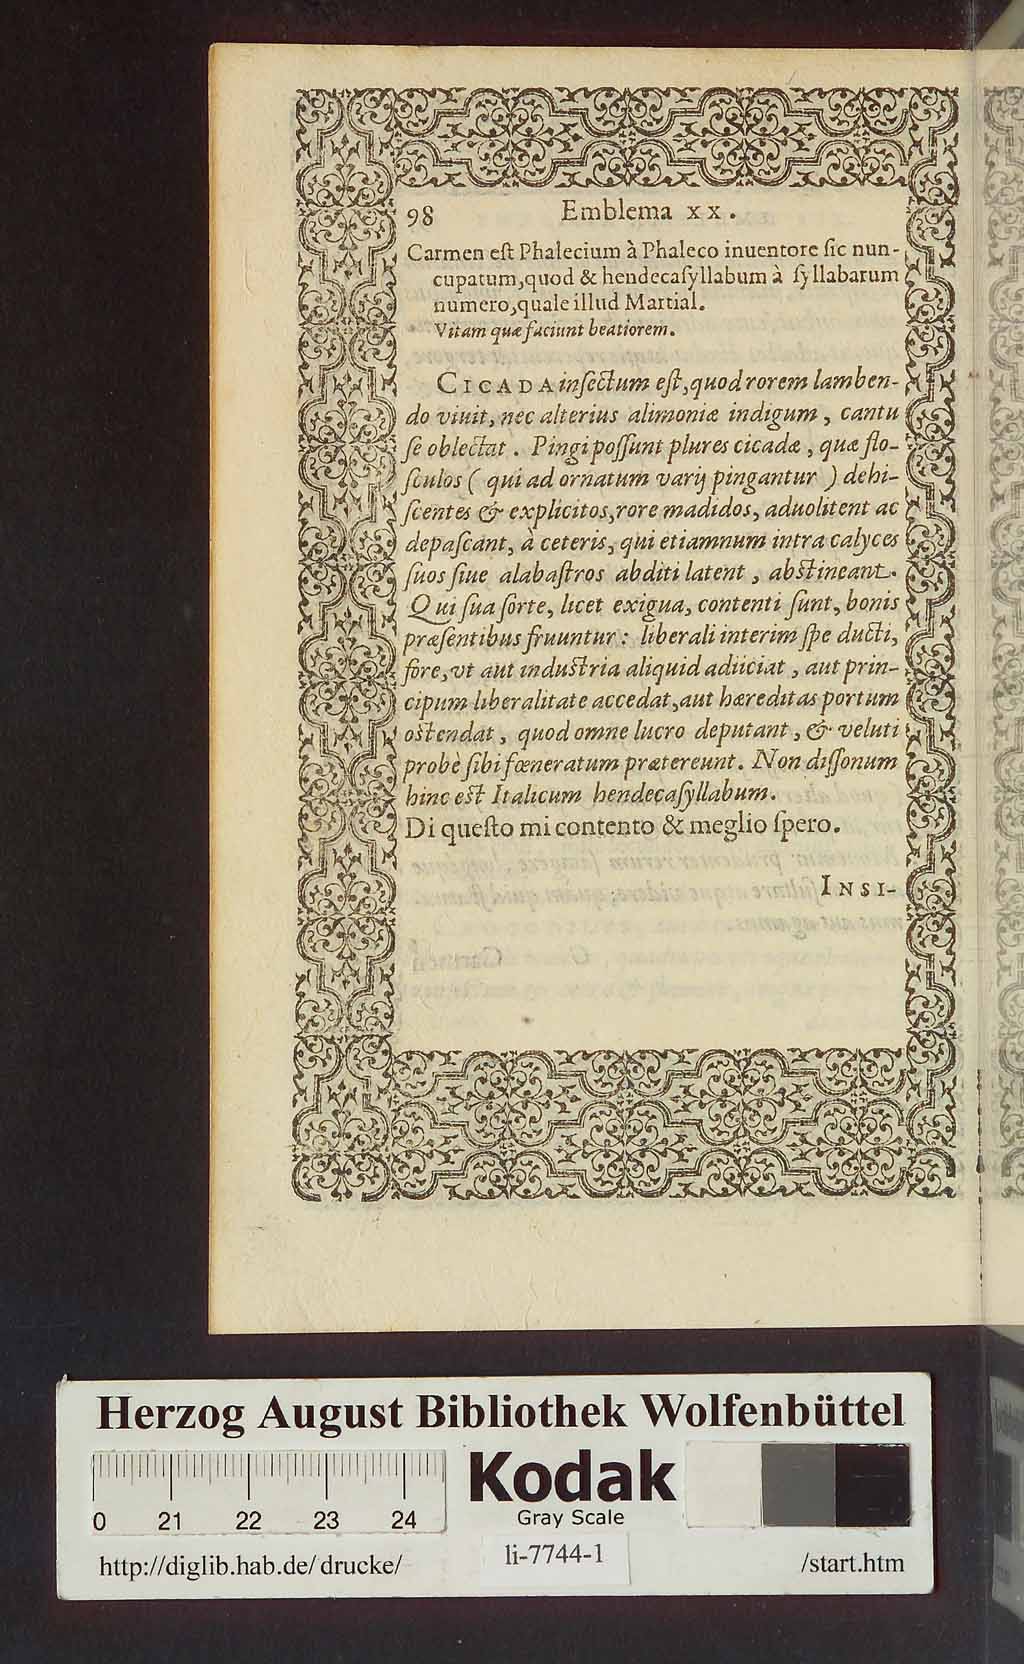 98 Emblema xx.
Carmen eſt Phalecium à Phaleco inuentore ſic nun-
cupatum, quod & hendecaſyllabum à ſyllabarum
numero, quale illud Martial.
Vitam quæ faciunt beatiorem.
CICADA inſectum eſt, quod rorem lamben-
do viuit, nec alterius alimoniæ indigum, cantu
ſe oblectat. Pingi poſſunt plures cicadæ, quæ flo-
ſculos ( qui ad ornatum varij pingantur ) dehi-
ſcentes & explicitos, rore madidos, aduolitent ac
depaſcant, à ceteris, qui etiamnum intra calyces
ſuos ſiue alabaſtros abditi latent, abſtineant.
Qui ſua ſorte, licet exigua, contenti ſunt, bonis
præſentibus fruuntur: liberali interim ſpe ducti,
fore, vt aut induſtria aliquid adiiciat, aut prin-
cipum liberalitate accedat, aut hæreditas portum
oſtendat, quod omne lucro deputant, & veluti
probè ſibi fœneratum prætereunt. Non diſſonum
hinc eſt Italicum hendecaſyllabum.
Di queſto mi contento & meglio ſpero.
INSI-
Herzog August Bibliothek Wolfenbüttel
0 21 22 23 24
Kodak
Gray Scale
http://diglib.hab.de/drucke/
li-7744-1
/start.htm